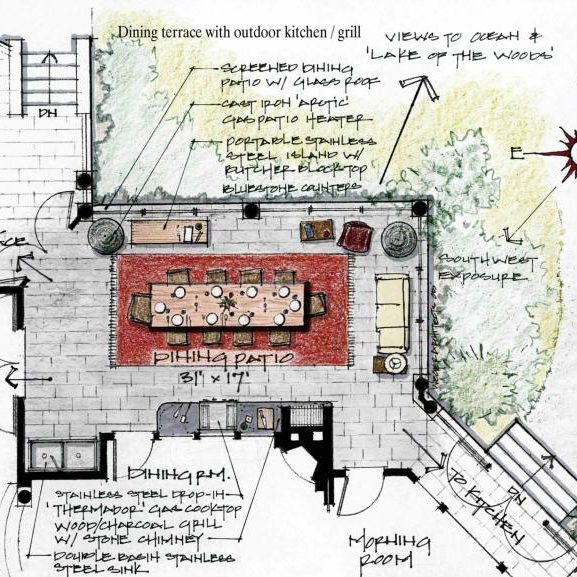 Dining terrace with outdoor kitchen / grill
VIEWS TO OCEAN &
'LAKE OF THE WOODS'
SCREENED DINING
PATIO W/ GLASS ROOF
CAST IRON 'ARCTIC'
GAS PATIO HEATER
PORTABLE STAINLESS
STEEL ISLAND W/
BUTCHER BLOCK TOP
BLUESTONE COUNTERS
DN
E
SOUTHWEST
EXPOSURE
DINING PATIO
31' x 17'
DINING RM.
STAINLESS STEEL DROP-IN
'THERMADOR' GAS COOKTOP
WOOD/CHARCOAL GRILL
W/ STONE CHIMNEY
DOUBLE BASIN STAINLESS
STEEL SINK
MORNING
ROOM
TO KITCHEN
DN